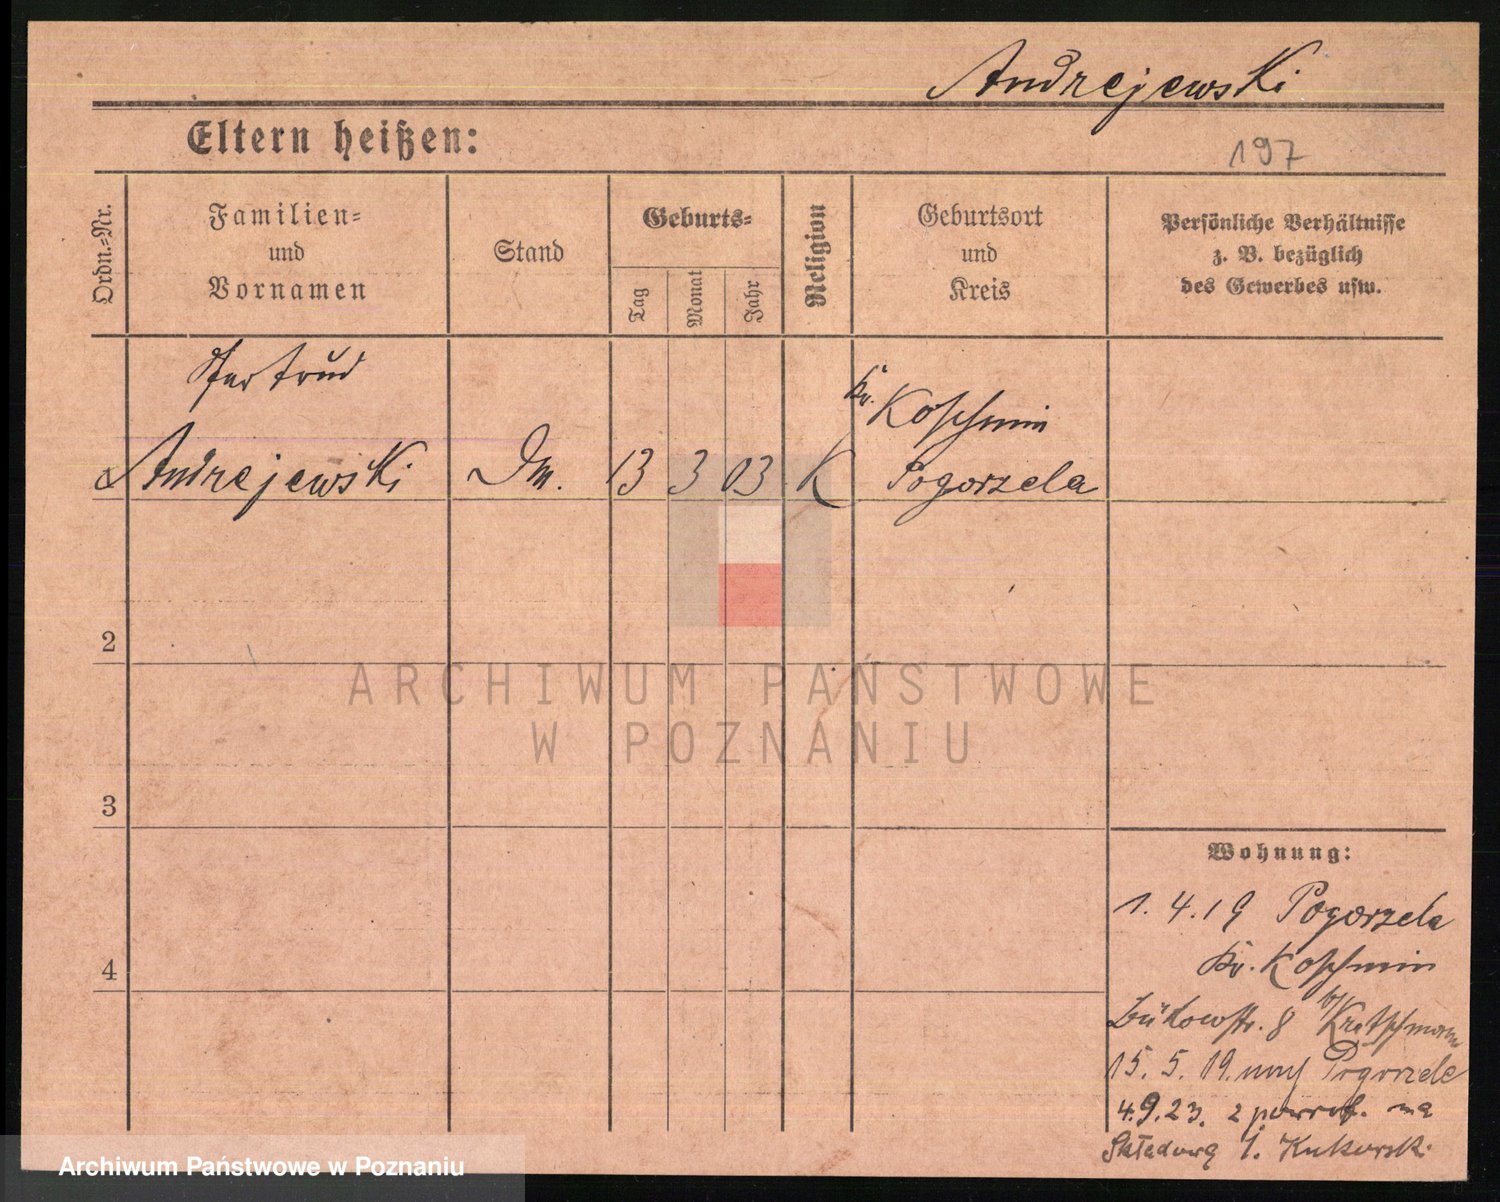 Andrejewski
Eltern heißen:
197
Ordn.=Nr.
Familien=
und
Vornamen
Stand
Geburts=
Tag
Monat
Jahr
Religion
Geburtsort
und
Kreis
Persönliche Verhältnisse
z. B. bezüglich
des Gewerbes usw.
Gertrud
Andrejewski
Dm.
13
3
03
K
Kr. Koschmin
Pogorzela
2
3
4
ARCHIWUM PAŃSTWOWE
W POZNANIU
Wohnung:
1. 4. 19 Pogorzela
Kr. Koschmin
Bükowstr. 8 b/ Kretschmann
15. 5. 19. nach Pogorzela
4.9.23. z powrot. na
Składową 1. Kukorski
Archiwum Państwowe w Poznaniu